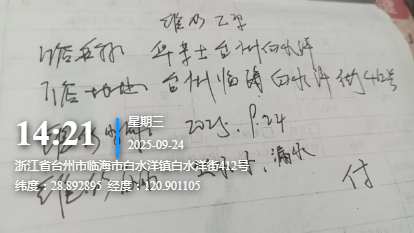 维修工单
门店名称 华莱士台州白水洋
门店地址 台州临海白水洋街412号
2025.9.24
14:21
星期三
2025-09-24
浙江省台州市临海市白水洋镇白水洋街412号
漏水
纬度:28.892895 经度:120.901105
付